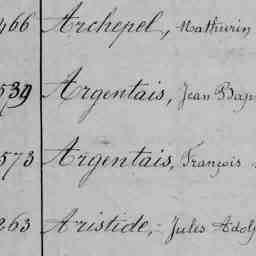 466 Archepel, Mathurin
539 Argentais, Jean Bap
573 Argentais, François
263 Aristide, Jules Adolp